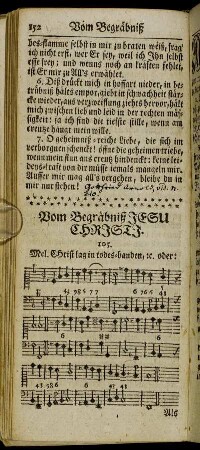 152 Vom Begräbniß
bes-flamme selbst in mir zu braten weiß, frag'
ich nicht erst, wer Er sey, weil ich Ihn selbst
esse frey; und wenns noch an kräften fehlet,
ist Er mir zu All's erwählet.
6. Deß drückt mich in hoffart nieder, in be-
trübniß hälts empor, giebt in schwachheit stär-
cke wieder, aus verzweiflung ziehts hervor, hält
mich zwischen lieb und leid in der rechten mäs-
sigkeit: ja das sind die tiefste stille, wenn am
creutze hängt mein wille.
7. O geheimniß-reiche Liebe, die sich im
verborgnen schenckt! öffne die geheimen triebe,
wenn mein sinn ans creutz hindenckt: keine lei-
dens-kraft von dir müsse jemals mangeln mir.
Ausser mir mag all's vergehen, bleibe du in
mir nur stehen!
Vom Begräbniß JESU
CHRISTI.
105.
Mel. Christ lag in todes-banden, ꝛc. oder:
Als